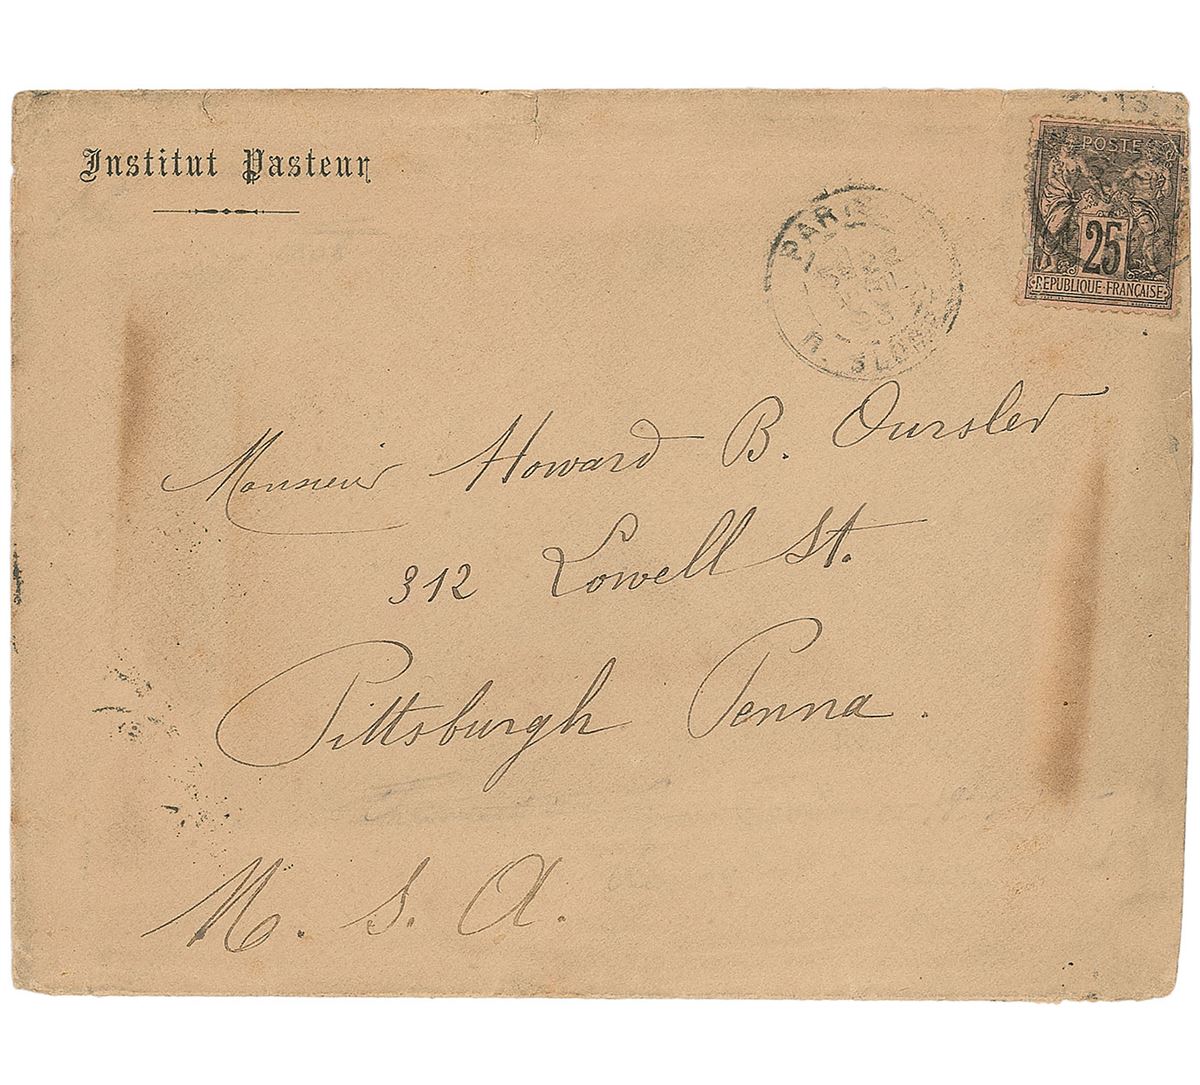 Institut Pasteur
POSTES
25
REPUBLIQUE FRANÇAISE
PARIS
Monsieur Howard B. Oursler
312 Lowell St.
Pittsburgh Penna.
U. S. A.